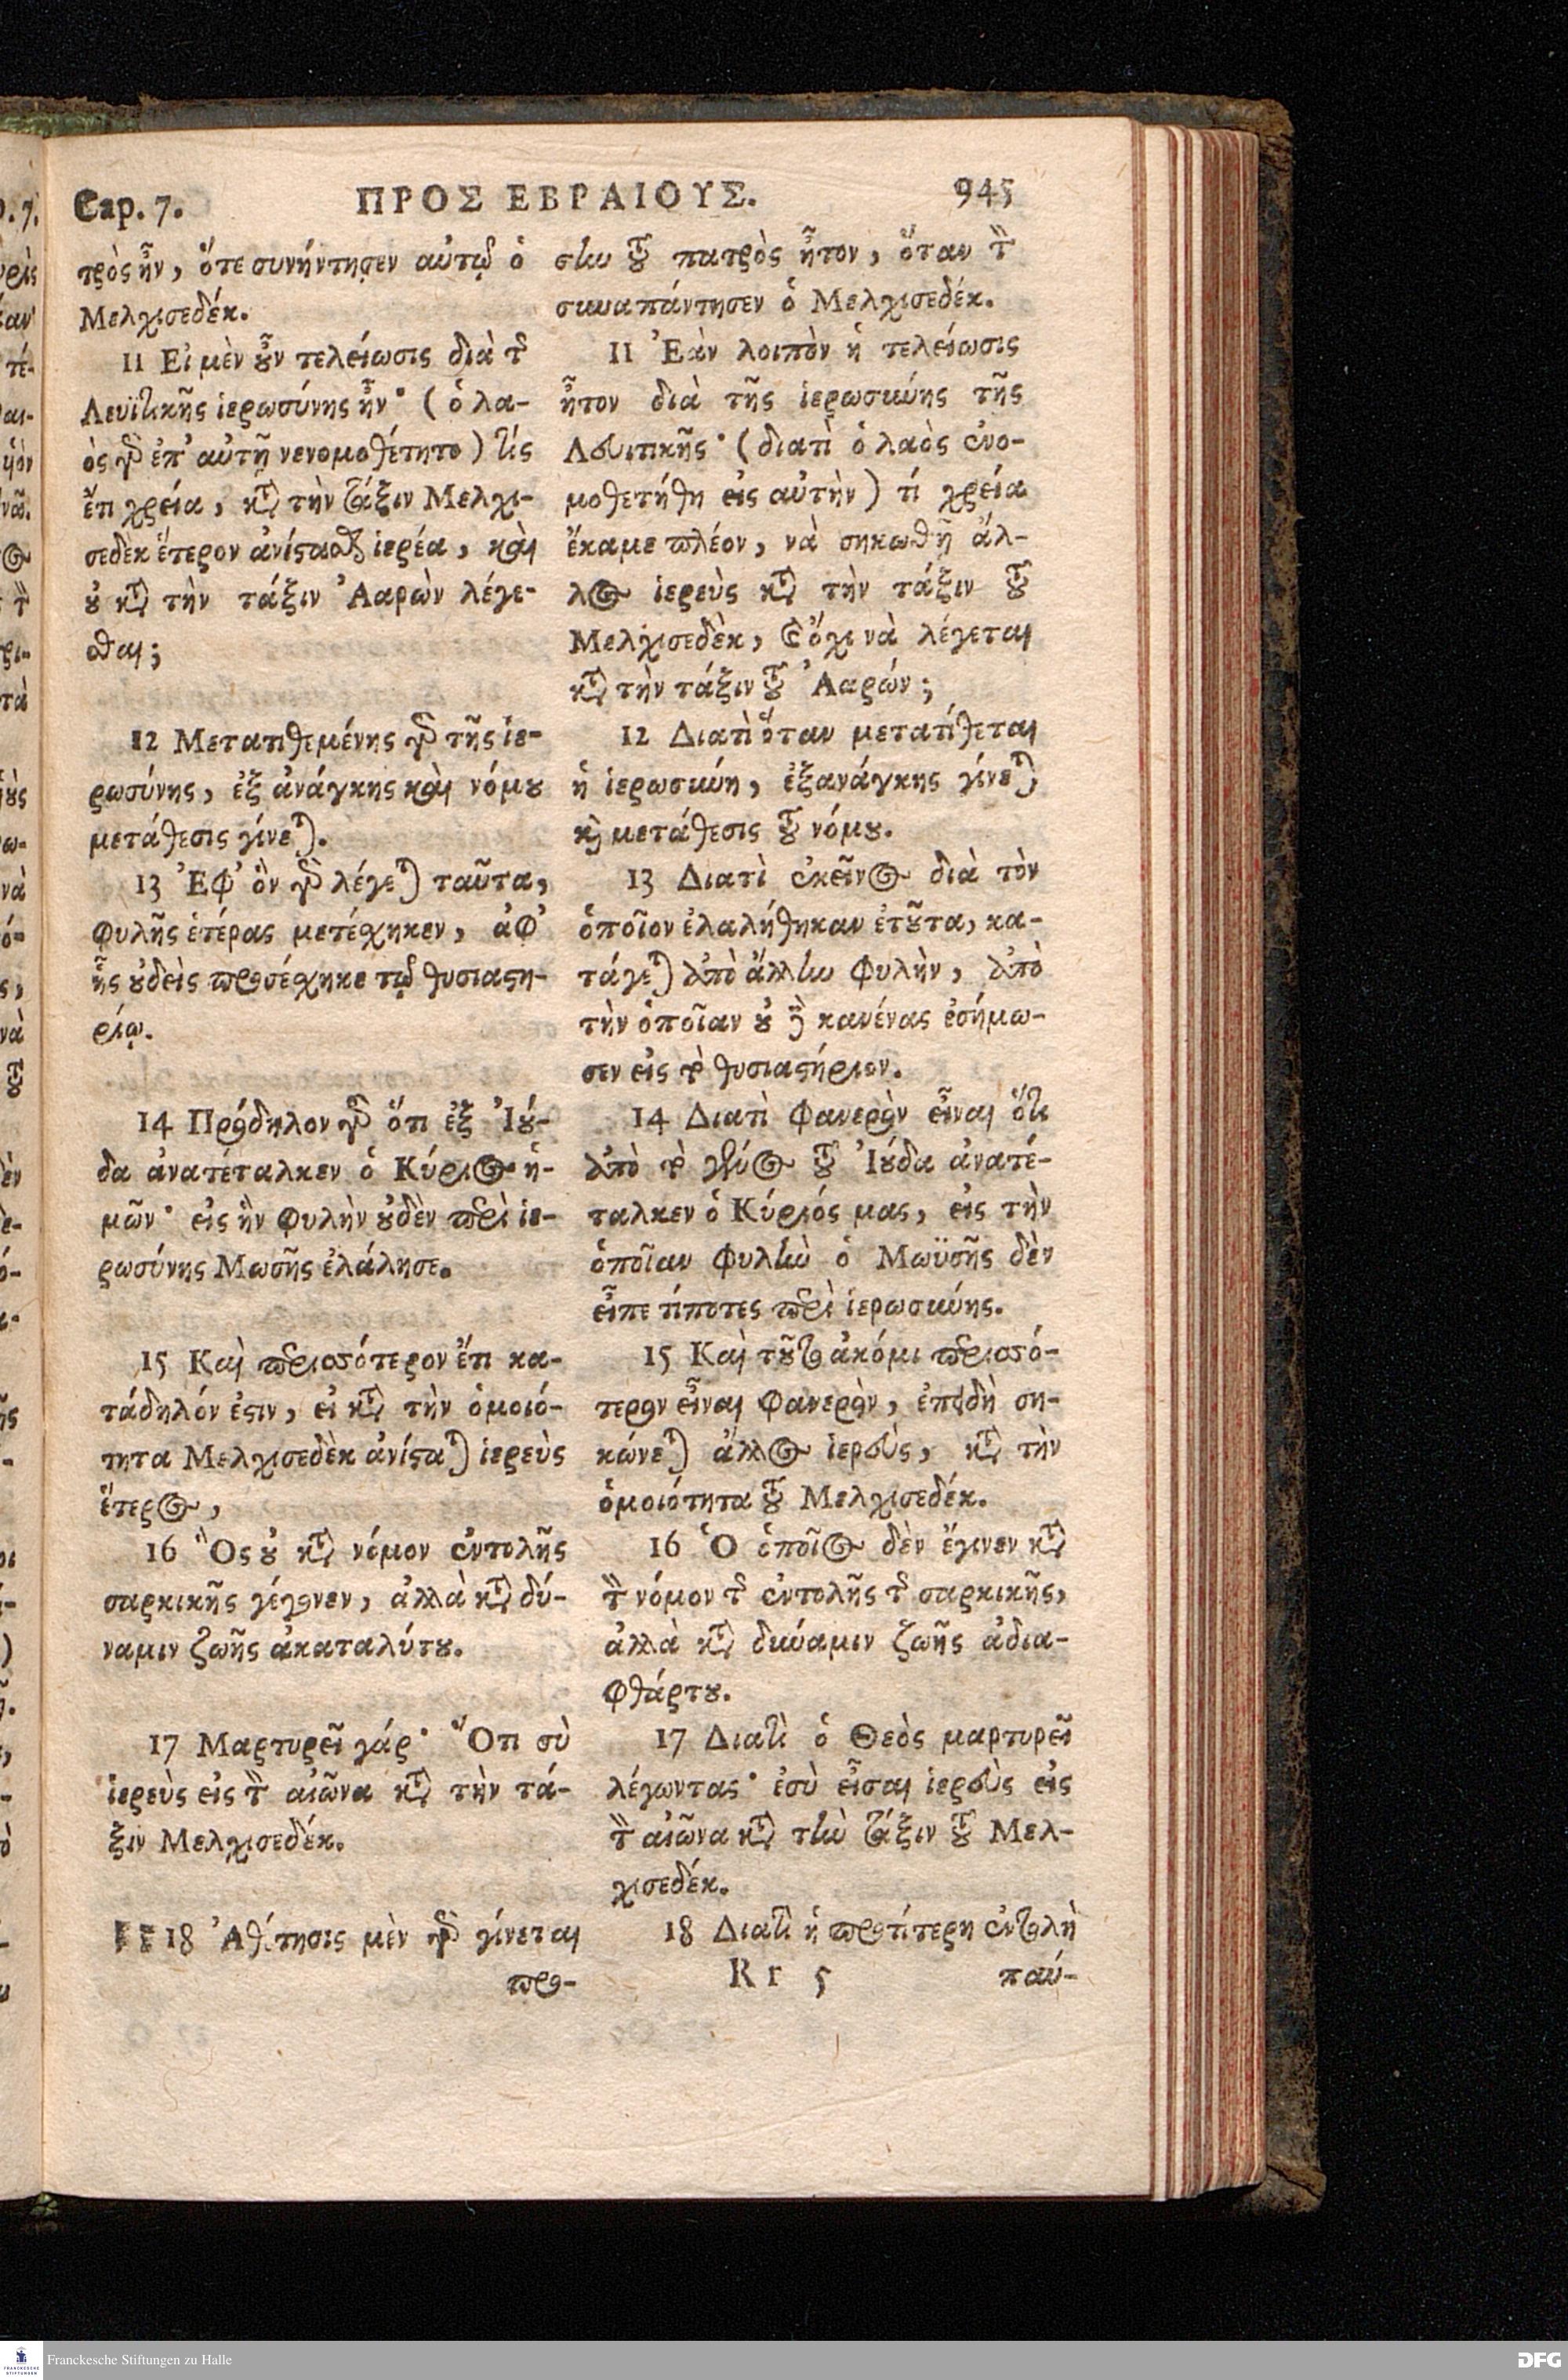 Cap. 7.
ΠΡΟΣ ΕΒΡΑΙΟΥΣ.
945
τρὸς ἦν, ὅτε συνήντησεν αὐτῷ ὁ
Μελχισεδέκ.
11 Εἰ μὲν ȣ̓͂ν τελείωσις διὰ τ̑
Λευϊτικῆς ἱερωσύνης ἦν· (ὁ λα-
ὸς γὰρ ἐπ' αὐτῇ νενομοθέτητο) τίς
ἔτι χρεία, κατὰ τὴν τάξιν Μελχι-
σεδὲκ ἕτερον ἀνίϛαϑαι ἱερέα, καὶ
ȣ̓ κατὰ τὴν τάξιν Ἀαρὼν λέγε-
σθαι;
12 Μετατιθεμένης γὰρ τῆς ἱε-
ρωσύνης, ἐξ ἀνάγκης καὶ νόμȣ
μετάθεσις γίνεται.
13 Ἐφ' ὃν γὰρ λέγεται ταῦτα,
φυλῆς ἑτέρας μετέσχηκεν, ἀφ'
ἧς ȣ̓δεὶς προσέσχηκε τῷ θυσιαϛη-
ρίῳ.
14 Πρόδηλον γὰρ ὅτι ἐξ Ἰȣ́-
δα ἀνατέταλκεν ὁ Κύριος ἡ-
μῶν· εἰς ἣν φυλὴν ȣ̓δὲν περὶ ἱε-
ρωσύνης Μωσῆς ἐλάλησε.
15 Καὶ περισσότερον ἔτι κα-
τάδηλόν ἐϛιν, εἰ κατὰ τὴν ὁμοιό-
τητα Μελχισεδὲκ ἀνίϛαται ἱερεὺς
ἕτερος,
16 Ὃς ȣ̓ κατὰ νόμον ἐντολῆς
σαρκικῆς γέγονεν, ἀλλὰ κατὰ δύ-
ναμιν ζωῆς ἀκαταλύτȣ.
17 Μαρτυρεῖ γάρ· Ὅτι σὺ
ἱερεὺς εἰς τὸν αἰῶνα κατὰ τὴν τά-
ξιν Μελχισεδέκ.
18 Ἀθέτησις μὲν γὰρ γίνεται
προ-
σὶν τοῦ πατρὸς ἦτον, ὅταν τὸν
συναπάντησεν ὁ Μελχισεδέκ.
11 Ἐὰν λοιπὸν ἡ τελείωσις
ἦτον διὰ τῆς ἱερωσύνης τῆς
Λευιτικῆς· (διατὶ ὁ λαὸς ἐνο-
μοθετήθη εἰς αὐτὴν) τί χρεία
ἔκαμε πλέον, νὰ σηκωθῇ ἄλ-
λος ἱερεὺς κατὰ τὴν τάξιν τοῦ
Μελχισεδὲκ, καὶ ὄχι νὰ λέγεται
κατὰ τὴν τάξιν τοῦ Ἀαρών;
12 Διατὶ ὅταν μετατίθεται
ἡ ἱερωσύνη, ἐξανάγκης γίνεται
καὶ μετάθεσις τοῦ νόμȣ.
13 Διατὶ ἐκεῖνος διὰ τὸν
ὁποῖον ἐλαλήθηκαν ἐτȣ͂τα, κα-
τάγεται ἀπὸ ἄλλην φυλὴν, ἀπὸ
τὴν ὁποῖαν ȣ̓δὲ κανένας ἐσήμω-
σεν εἰς τὸ θυσιαϛήριον.
14 Διατὶ φανερὸν εἶναι ὅτι
ἀπὸ τὸ γένος τοῦ Ἰȣ́δα ἀνατέ-
ταλκεν ὁ Κύριός μας, εἰς τὴν
ὁποῖαν φυλὴν ὁ Μωϋσῆς δὲν
εἶπε τίποτες περὶ ἱερωσύνης.
15 Καὶ τȣ͂το ἀκόμι περισσό-
τερον εἶναι φανερὸν, ἐπειδὴ ση-
κώνεται ἄλλος ἱερεὺς, κατὰ τὴν
ὁμοιότητα τοῦ Μελχισεδέκ.
16 Ὁ ὁποῖος δὲν ἔγινεν κατὰ
τὸν νόμον τῆς ἐντολῆς τῆς σαρκικῆς,
ἀλλὰ κατὰ δύναμιν ζωῆς ἀδια-
φθάρτȣ.
17 Διατὶ ὁ Θεὸς μαρτυρεῖ
λέγωντας· ἐσὺ εἶσαι ἱερεὺς εἰς
τὸν αἰῶνα κατὰ τὴν τάξιν τοῦ Μελ-
χισεδέκ.
18 Διατὶ ἡ προτίτερη ἐντολὴ
Rr 5
παύ-
FRANCKESCHE STIFTUNGEN
Franckesche Stiftungen zu Halle
DFG